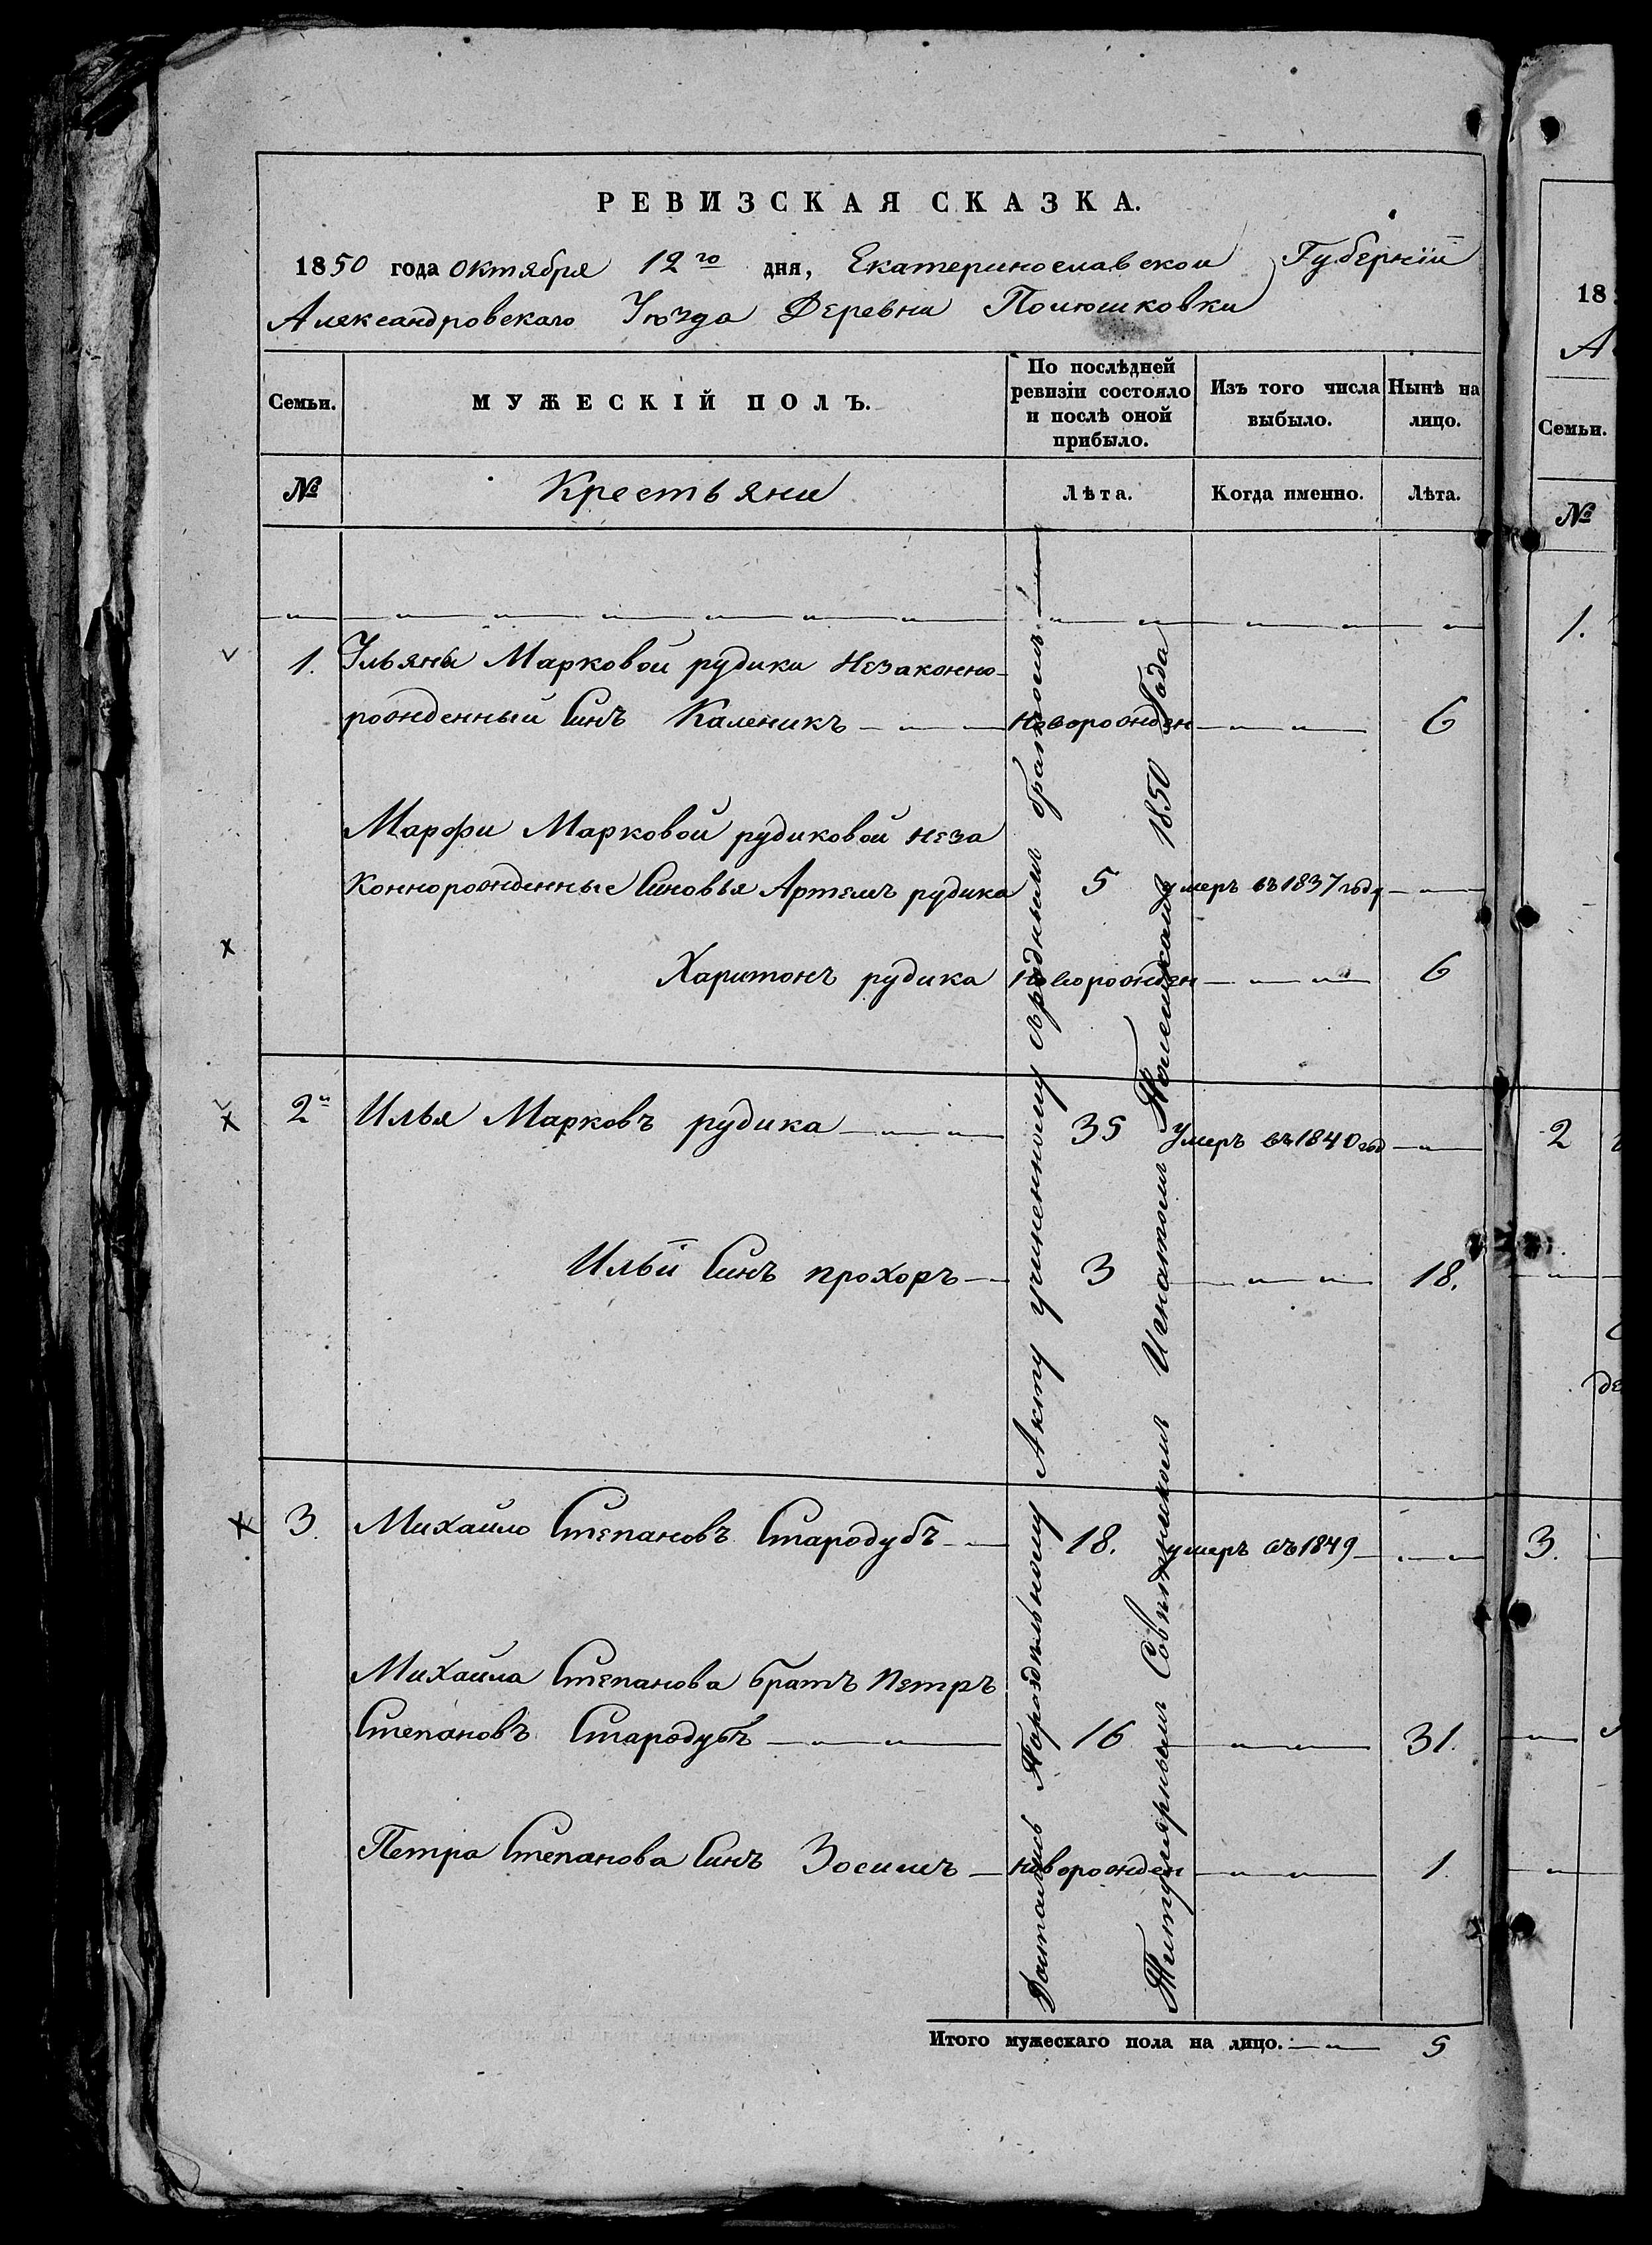 РЕВИЗСКАЯ СКАЗКА.
1850 года октября 12го дня, Екатеринославской Губернїи
Александровскаго Уѣзда Деревни Полюшковки
Семьи. МУЖЕСКІЙ ПОЛЪ. По послѣдней ревизіи состояло и послѣ оной прибыло. Изъ того числа выбыло. Нынѣ на лицо.
№ Крестьяни Лѣта. Когда именно. Лѣта.
1. Ульяны Марковой рудики незаконно-
рожденный Синъ Каленикъ новорожден 6
Марфи Марковой рудиковой неза
коннорожденные Синовья Артемъ рудика 5 умеръ въ 1837 году
Харитонъ рудика новорожден 6
2й Илья Марковъ рудика 35 Умеръ въ 1840 год
Ильи Синъ прохоръ 3 18.
3. Михайло Степановъ Стародубъ 18. умеръ въ 1849
Михайла Степанова братъ Петръ
Степановъ Стародубъ 16 31.
Петра Степанова Синъ Зосимъ новорожден 1.
Достались Пораздѣльному Акту учиненному съ роднымъ братомъ
Титулярнымъ Совѣтникомъ Игнатомъ 1850 Года
Итого мужескаго пола на лицо. 5
18
А
Семьи.
№
1.
2
3.